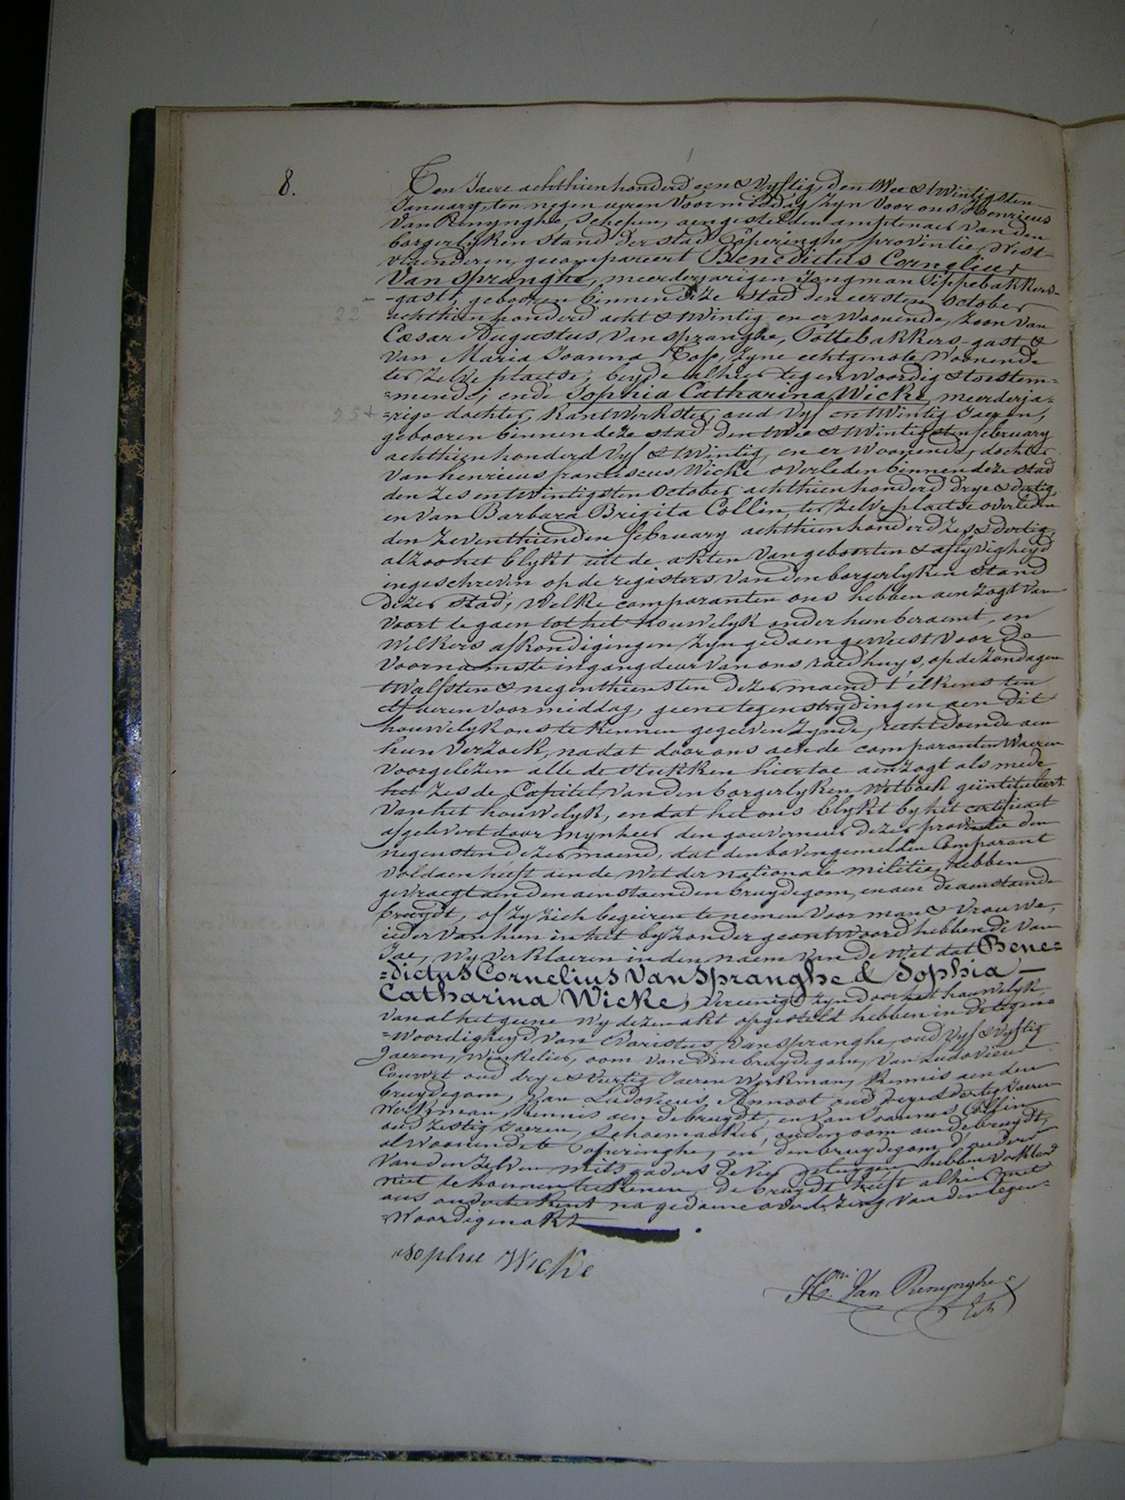 8.
Ten Jaere achthien honderd een & vyftig, den twee & twintigsten
January, ten negen uren voormiddag zyn voor ons Henricus
Van Renynghe, Schepen, aengestelden amptenaer van den
borgerlyken stand der stad Poperinghe, provintie West-
vlaenderen, gecompareert Benedictus Cornelius
Van Spranghe, meerderjarigen jongman Pottebakkers-
-gast, gebooren binnen deze stad den eersten October
22
achthien honderd acht & twintig en er woonende, zoon van
Cæsar Augustus Van Spranghe, Pottebakkers-gast &
van Maria Joanna Top, zyne echtgenote woonende
ter zelve plaetse, beyde alhier tegenwoordig & toestem-
=mende, ende Sophia Catharina Wicke, meerderja-
25
=rige dochter, kantwerkster, oud vyf en twintig Jaeren,
gebooren binnen deze stad den twee & twintigsten february
achthien honderd vyf & twintig, en er woonende, dochter
van henricus franciscus Wicke overleden binnen deze stad
den zes en twintigsten October achthien honderd drye & dertig,
en van Barbara Brigita Collin, ter zelve plaetse overleden
den zeventhienden february achthien honderd zes & dertig,
alzoo het blykt uit de akten van geboorten & aflyvigheyd
ingeschreven op de registers van den borgerlyken stand
dezer stad, welke comparanten ons hebben aenzogt van
voort te gaen tot het houwelyk onder hun beraemt, en
welkers afkondigingen zyn gedaen geweest voor de
voornaemste ingangdeur van ons raedhuys, op de zondagen
twalfsten & negenthiensten dezer maend t'elkens ten
elf ueren voormiddag, geene tegenstrydingen aen dit
houwelyk ons te kennen gegeven zynde, rechtdoende aen
hun verzoek, nadat door ons aen de comparanten waeren
voorgelezen alle de stukken hiertoe aenzogt als mede
het zesde Capitel van den borgerlyken Wetboek geintituleert
van het houwelyk, en dat het ons blykt by het certificaet
afgelevert door Mynheer den gouverneur dezer provintie den
negensten dezer maend, dat den bovengemelden Comparant
voldaen heeft aen de Wet der nationale militie, hebben
gevraegt aen den aenstaenden bruydegom, en aen de aenstaende
bruydt, of zy zich begeiren te nemen voor man & vrouwe,
ieder van hun in het byzonder geantwoord hebbende van
Jae, wy verklaeren in den naem van de Wet dat Bene=
=dictus Cornelius Van Spranghe & Sophia
Catharina Wicke, vereenigd zyn door het houwelyk
van al het geene wy dezen akt opgesteld hebben in de tegen=
=woordigheyd van Van Spranghe, oud vyf & vyftig
Jaeren, Winkelier, oom van den bruydegom, van Ludovicus
Couvret oud drye & veertig Jaeren werkman, kennis aen den
bruydegom, van Ludovicus Annoot oud dertig Jaeren
werkman, kennis aen de bruydt, en van Joannes Collin
oud zestig Jaeren, Schoemaeker, ouden oom aen de bruydt,
al woonende te Poperinghe, en den bruydegom, d'ouders
van den zelven mitsgaders de vier getuygen hebben verklaerd
niet te konnen teekenen, de bruydt heeft alhier met
ons onderteekent na gedaene overlezing van den tegen-
=woordigen akt.
Sophie Wicke
H.ri Van Renynghe